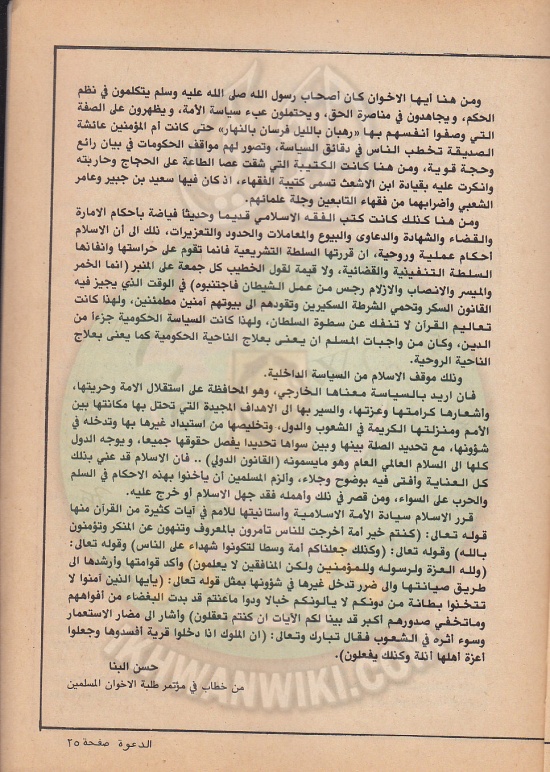 ومن هنا أيها الاخوان كان أصحاب رسول الله صلى الله عليه وسلم يتكلمون في نظم
الحكم، ويجاهدون في مناصرة الحق، ويحتملون عبء سياسة الأمة، ويظهرون على الصفة
التي وصفوا أنفسهم بها «رهبان بالليل فرسان بالنهار» حتى كانت أم المؤمنين عائشة
الصديقة تخطب الناس في دقائق السياسة، وتصور لهم مواقف الحكومات في بيان رائع
وحجة قوية، ومن هنا كانت الكتيبة التي شقت عصا الطاعة على الحجاج وحاربته
وانكرت عليه بقيادة ابن الاشعث تسمى كتيبة الفقهاء، اذ كان فيها سعيد بن جبير وعامر
الشعبي وأضرابهما من فقهاء التابعين وجلة علمائهم.
ومن هنا كذلك كانت كتب الفقه الاسلامي قديما وحديثا فياضة بأحكام الامارة
والقضاء والشهادة والدعاوى والبيوع والمعاملات والحدود والتعزيرات، ذلك الى أن الاسلام
أحكام عملية وروحية، ان قررتها السلطة التشريعية فانما تقوم على حراستها وانفاذها
السلطة التنفيذية والقضائية، ولا قيمة لقول الخطيب كل جمعة على المنبر (انما الخمر
والميسر والانصاب والازلام رجس من عمل الشيطان فاجتنبوه) في الوقت الذي يجيز فيه
القانون السكر وتحمي الشرطة السكيرين وتقودهم الى بيوتهم آمنين مطمئنين، ولهذا كانت
تعاليم القرآن لا تنفك عن سطوة السلطان، ولهذا كانت السياسة الحكومية جزءا من
الدين، وكان من واجبات المسلم ان يعنى بعلاج الناحية الحكومية كما يعنى بعلاج
الناحية الروحية.
وذلك موقف الاسلام من السياسة الداخلية.
فان اريد بالسياسة معناها الخارجي، وهو المحافظة على استقلال الامة وحريتها،
وأشعارها كرامتها وعزتها، والسير بها الى الاهداف المجيدة التي تحتل بها مكانتها بين
الأمم ومنزلتها الكريمة في الشعوب والدول، وتخليصها من استبداد غيرها بها وتدخله في
شؤونها، مع تحديد الصلة بينها وبين سواها تحديدا يفصل حقوقها جميعا، ويوجه الدول
كلها الى السلام العالمي العام وهو مايسمونه (القانون الدولي) .. فان الاسلام قد عني بذلك
كل العناية وأفتى فيه بوضوح وجلاء، وألزم المسلمين أن يأخذوا بهذه الاحكام في السلم
والحرب على السواء، ومن قصر في ذلك وأهمله فقد جهل الاسلام أو خرج عليه.
قرر الاسلام سيادة الأمة الاسلامية وأستاذيتها للأمم في آيات كثيرة من القرآن منها
قوله تعالى: (كنتم خير أمة أخرجت للناس تأمرون بالمعروف وتنهون عن المنكر وتؤمنون
بالله) وقوله تعالى: (وكذلك جعلناكم أمة وسطا لتكونوا شهداء على الناس) وقوله تعالى:
(ولله العزة ولرسوله وللمؤمنين ولكن المنافقين لا يعلمون) وأكد قوامتها وأرشدها الى
طريق صيانتها والى ضرر تدخل غيرها في شؤونها بمثل قوله تعالى: (يأيها الذين آمنوا لا
تتخذوا بطانة من دونكم لا يألونكم خبالا ودوا ماعنتم قد بدت البغضاء من أفواههم
وماتخفي صدورهم أكبر قد بينا لكم الآيات ان كنتم تعقلون) وأشار الى مضار الاستعمار
وسوء أثره في الشعوب فقال تبارك وتعالى: (ان الملوك اذا دخلوا قرية أفسدوها وجعلوا
أعزة أهلها أذلة وكذلك يفعلون).
حسن البنا
من خطاب في مؤتمر طلبة الاخوان المسلمين
IKHWANWIKI.COM
الدعوة صفحة ٢٥